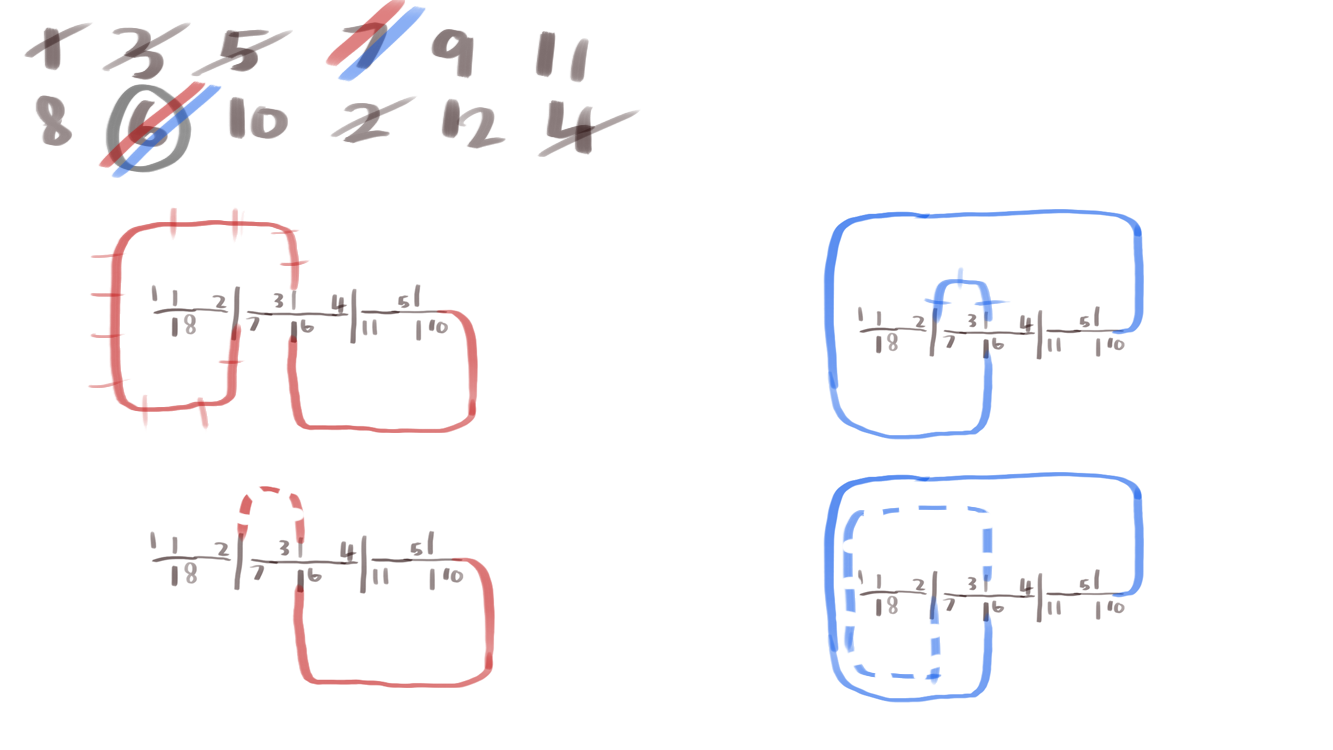 1 3 5 7 9 11
8 6 10 2 12 4
1 2 3 4 5
8 7 6 11 10
1 2 3 4 5
8 7 6 11 10
1 2 3 4 5
8 7 6 11 10
1 2 3 4 5
8 7 6 11 10